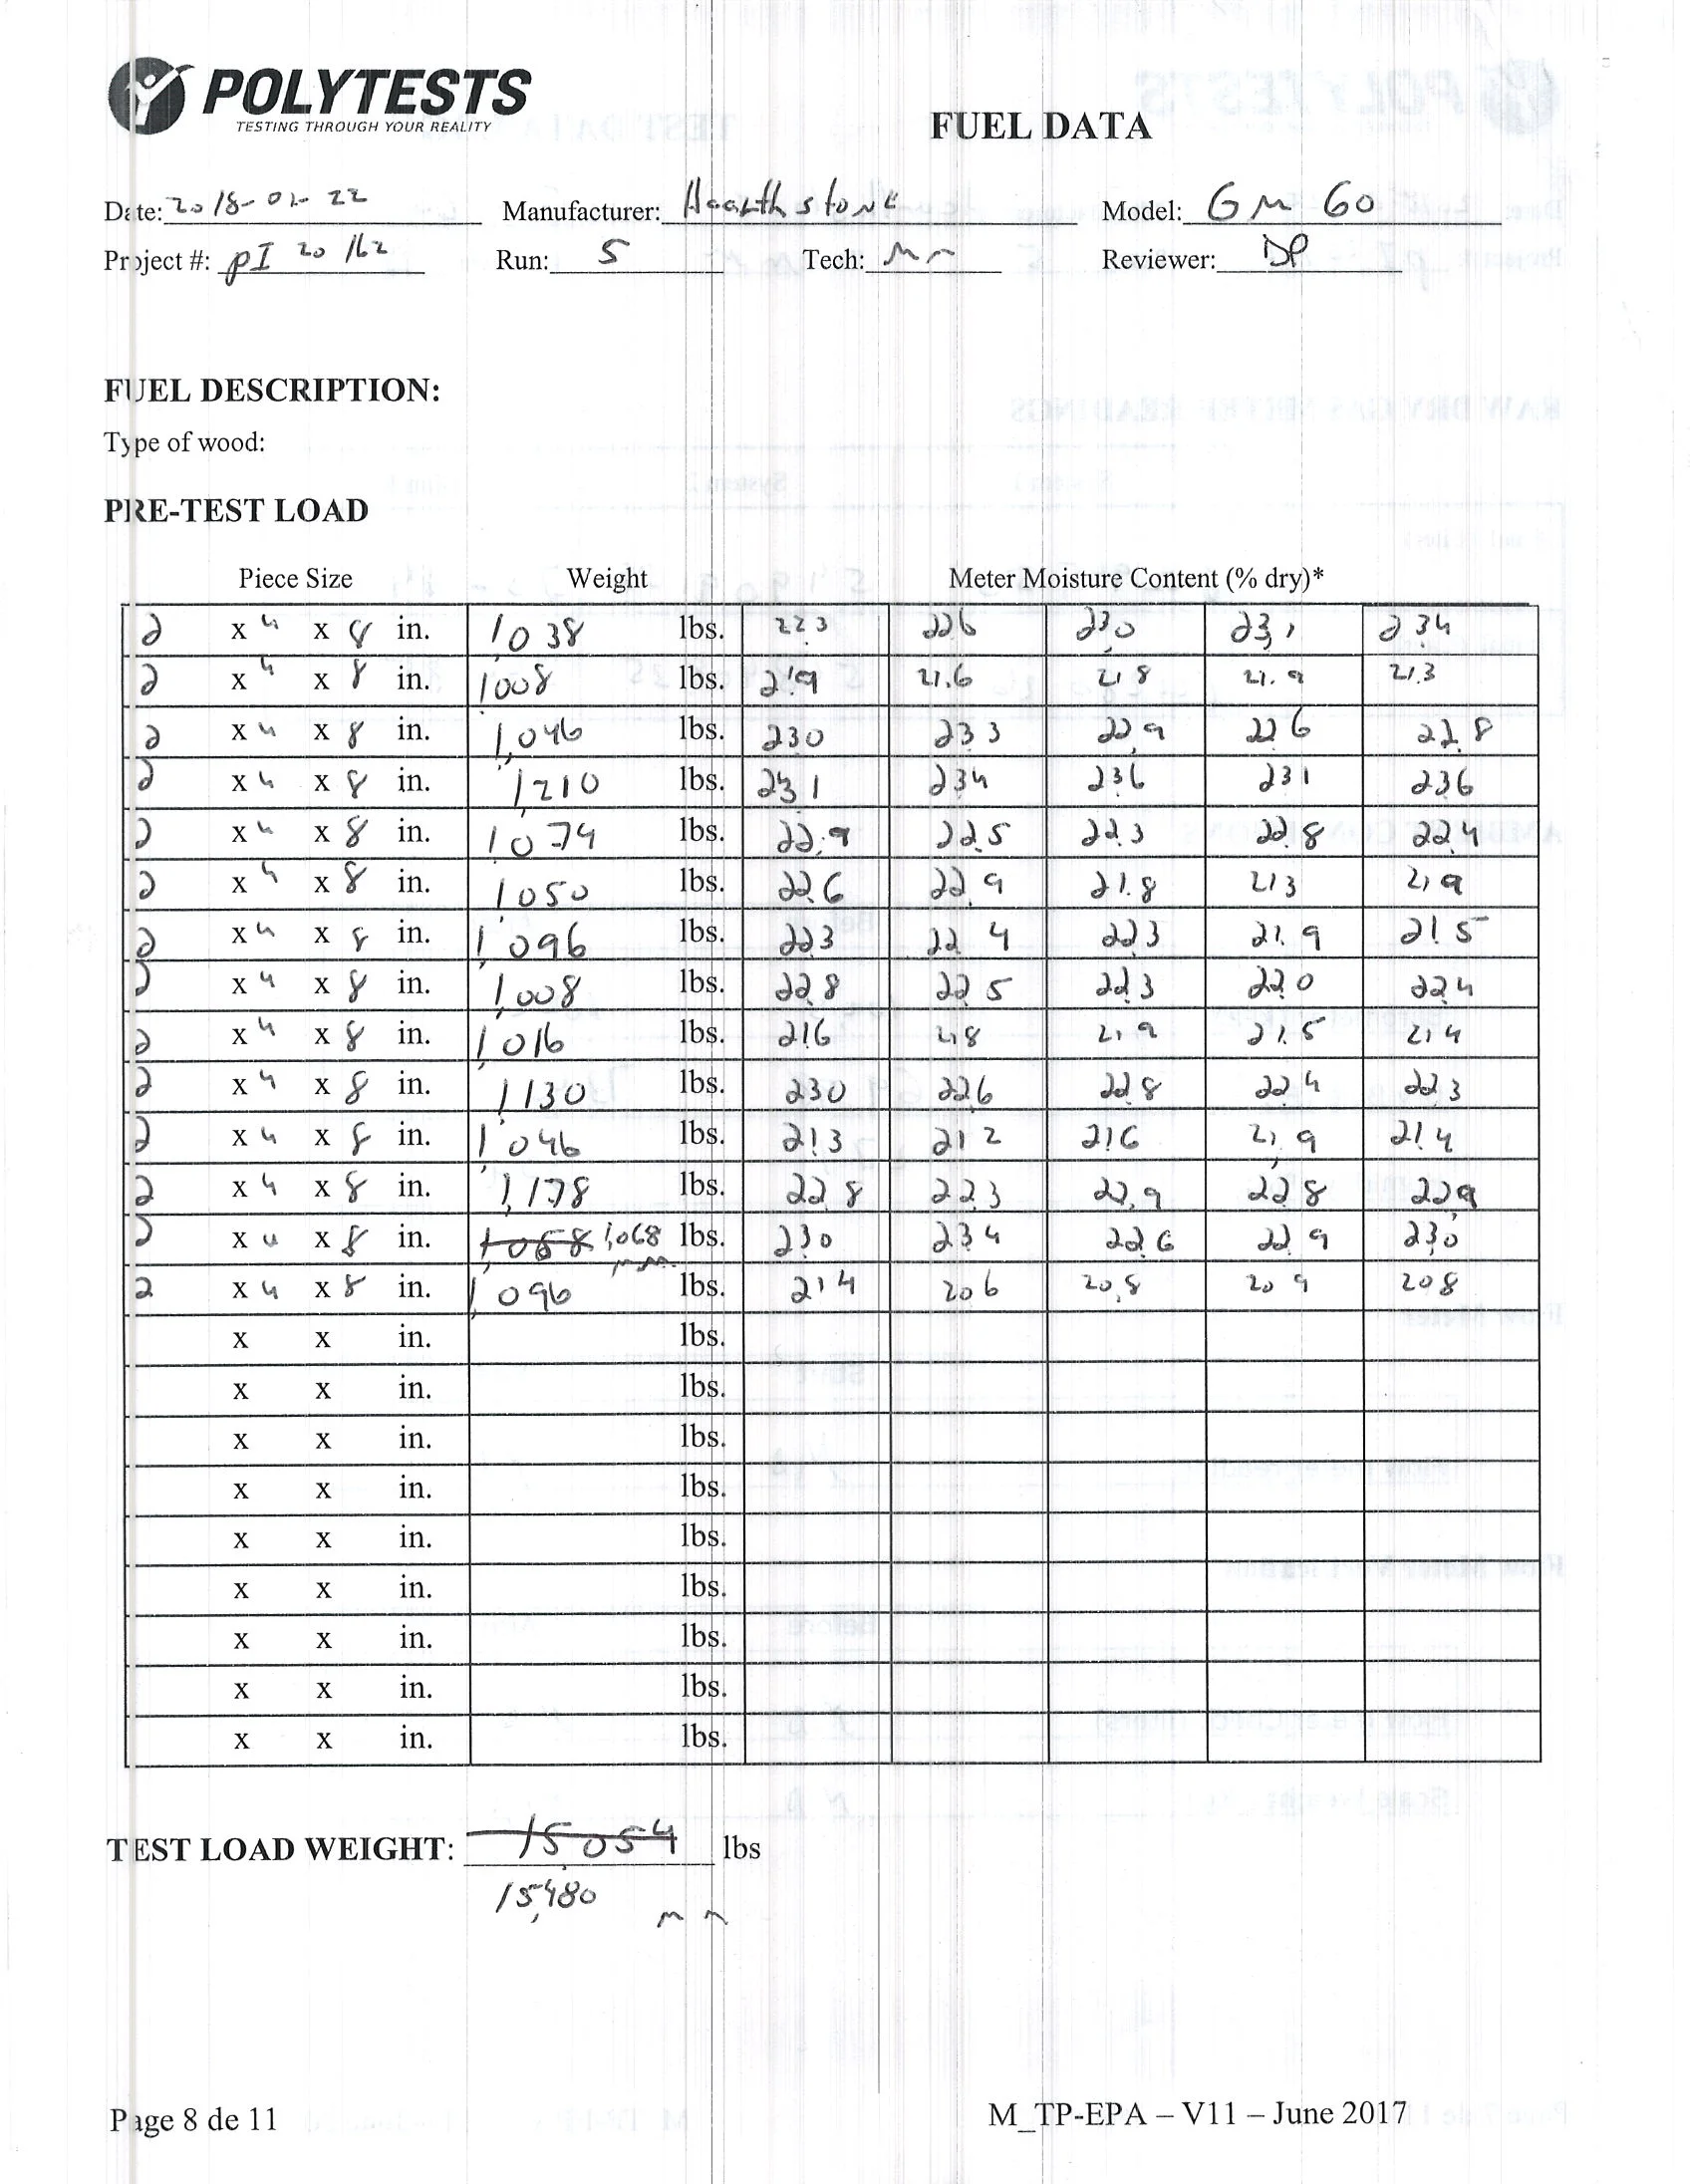 POLYTESTS
TESTING THROUGH YOUR REALITY
FUEL DATA
Date: 2018-01-22 Manufacturer: Hearthstone Model: GM 60
Project #: pI 20162 Run: 5 Tech: mm Reviewer: DP
FUEL DESCRIPTION:
Type of wood:
PRE-TEST LOAD
Piece Size Weight Meter Moisture Content (% dry)*
2 x 4 x 8 in. 1,038 lbs. 22.3 22.6 23.0 23,1 23.4
2 x 4 x 8 in. 1,008 lbs. 21.9 21.6 21.8 21.9 21.3
2 x 4 x 8 in. 1,046 lbs. 23.0 23.3 22.9 22.6 22.8
2 x 4 x 8 in. 1,210 lbs. 23.1 23.4 23.6 23.1 23.6
2 x 4 x 8 in. 1,074 lbs. 22.9 22.5 22.3 22.8 22.4
2 x 4 x 8 in. 1,050 lbs. 22.6 22.9 21.8 21.3 21.9
2 x 4 x 8 in. 1,096 lbs. 22.3 22.4 22.3 21.9 21.5
2 x 4 x 8 in. 1,008 lbs. 22.8 22.5 22.3 22.0 22.4
2 x 4 x 8 in. 1,016 lbs. 21.6 21.8 21.9 21.5 21.4
2 x 4 x 8 in. 1,130 lbs. 23.0 22.6 22.8 22.4 22.3
2 x 4 x 8 in. 1,046 lbs. 21.3 21.2 21.6 21.9 21.4
2 x 4 x 8 in. 1,178 lbs. 22.8 22.3 22.9 22.8 22.9
2 x 4 x 8 in. 1,068 lbs. 23.0 23.4 22.6 22.9 23.0
mm
2 x 4 x 8 in. 1,096 lbs. 21.4 20.6 20.8 20.9 20.8
x x in. lbs.
x x in. lbs.
x x in. lbs.
x x in. lbs.
x x in. lbs.
x x in. lbs.
x x in. lbs.
x x in. lbs.
x x in. lbs.
TEST LOAD WEIGHT: 15,054 lbs
15,480
mm
Page 8 de 11 M_TP-EPA – V11 – June 2017